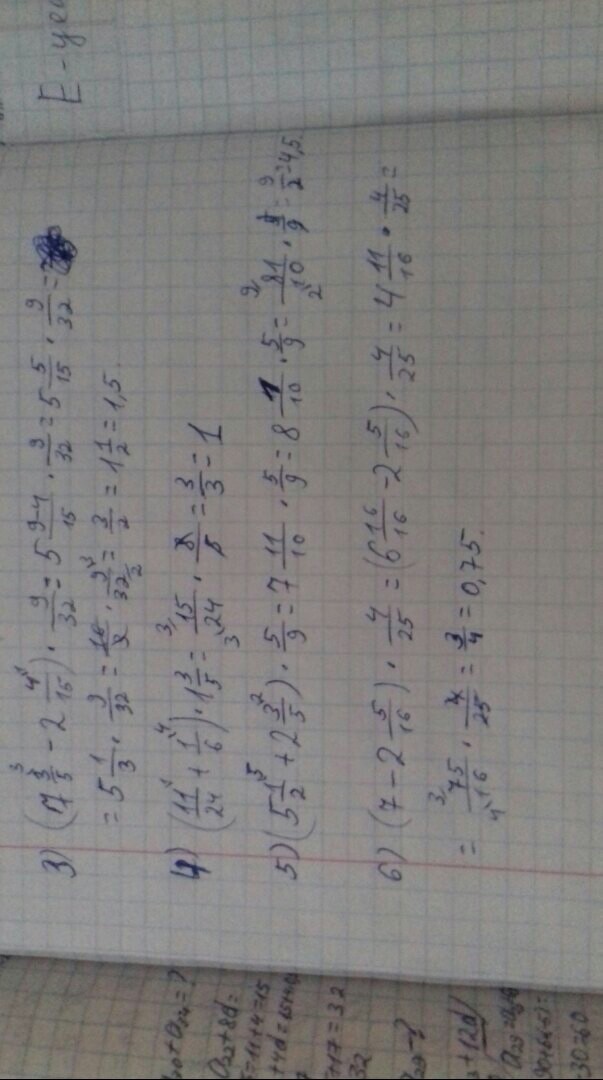 E - ует
3) (7 3/5 - 2 4/15) · 9/32 = 5 9-4/15 · 9/32 = 5 5/15 · 9/32 =
= 5 1/3 · 9/32 = 16/3 · 9/32 = 3/2 = 1 1/2 = 1,5.
4) (11/24 + 1/6) · 1 3/5 = 15/24 · 8/5 = 3/3 = 1
5) (5 1/2 + 2 3/5) · 5/9 = 7 11/10 · 5/9 = 8 1/10 · 5/9 = 81/10 · 5/9 = 9/2 = 4,5.
6) (7 - 2 5/16) · 4/25 = (6 16/16 - 2 5/16) · 4/25 = 4 11/16 · 4/25 =
= 75/16 · 4/25 = 3/4 = 0,75.
= 11 + 4 = 15
+ 17 = 32
32
30 = 60